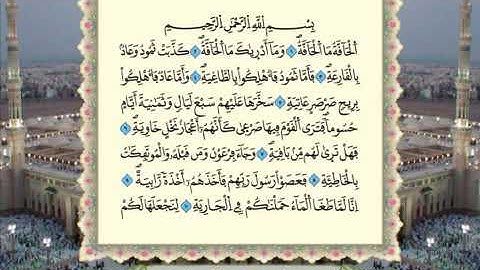 بِسْمِ اللَّهِ الرَّحْمَٰنِ الرَّحِيمِ
الْحَاقَّةُ مَا الْحَاقَّةُ ۝١ وَمَا أَدْرَىٰكَ مَا الْحَاقَّةُ ۝٢ كَذَّبَتْ ثَمُودُ وَعَادٌ
بِالْقَارِعَةِ ۝٣ فَأَمَّا ثَمُودُ فَأُهْلِكُوا بِالطَّاغِيَةِ ۝٤ وَأَمَّا عَادٌ فَأُهْلِكُوا
بِرِيحٍ صَرْصَرٍ عَاتِيَةٍ ۝٥ سَخَّرَهَا عَلَيْهِمْ سَبْعَ لَيَالٍ وَثَمَٰنِيَةَ أَيَّامٍ
حُسُومًا فَتَرَى الْقَوْمَ فِيهَا صَرْعَىٰ كَأَنَّهُمْ أَعْجَازُ نَخْلٍ خَاوِيَةٍ ۝٦
فَهَلْ تَرَىٰ لَهُم مِّنْ بَاقِيَةٍ ۝٧ وَجَاءَ فِرْعَوْنُ وَمَن قَبْلَهُ وَالْمُؤْتَفِكَٰتُ
بِالْخَاطِئَةِ ۝٨ فَعَصَوْا رَسُولَ رَبِّهِمْ فَأَخَذَهُمْ أَخْذَةً رَّابِيَةً ۝٩
إِنَّا لَمَّا طَغَا الْمَاءُ حَمَلْنَٰكُمْ فِي الْجَارِيَةِ ۝١٠ لِنَجْعَلَهَا لَكُمْ